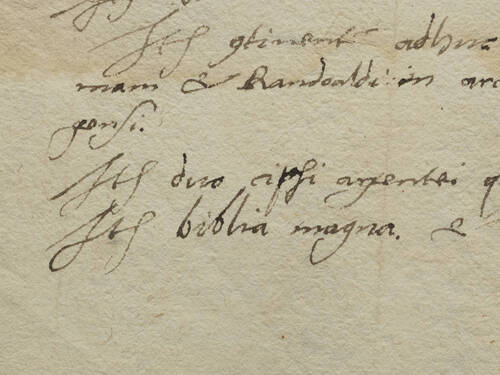 Itē 9tinent adhu
mam & Randoaldi in arc
pensi.
Itē duo ciphi argentei q
Itē biblia magna. &